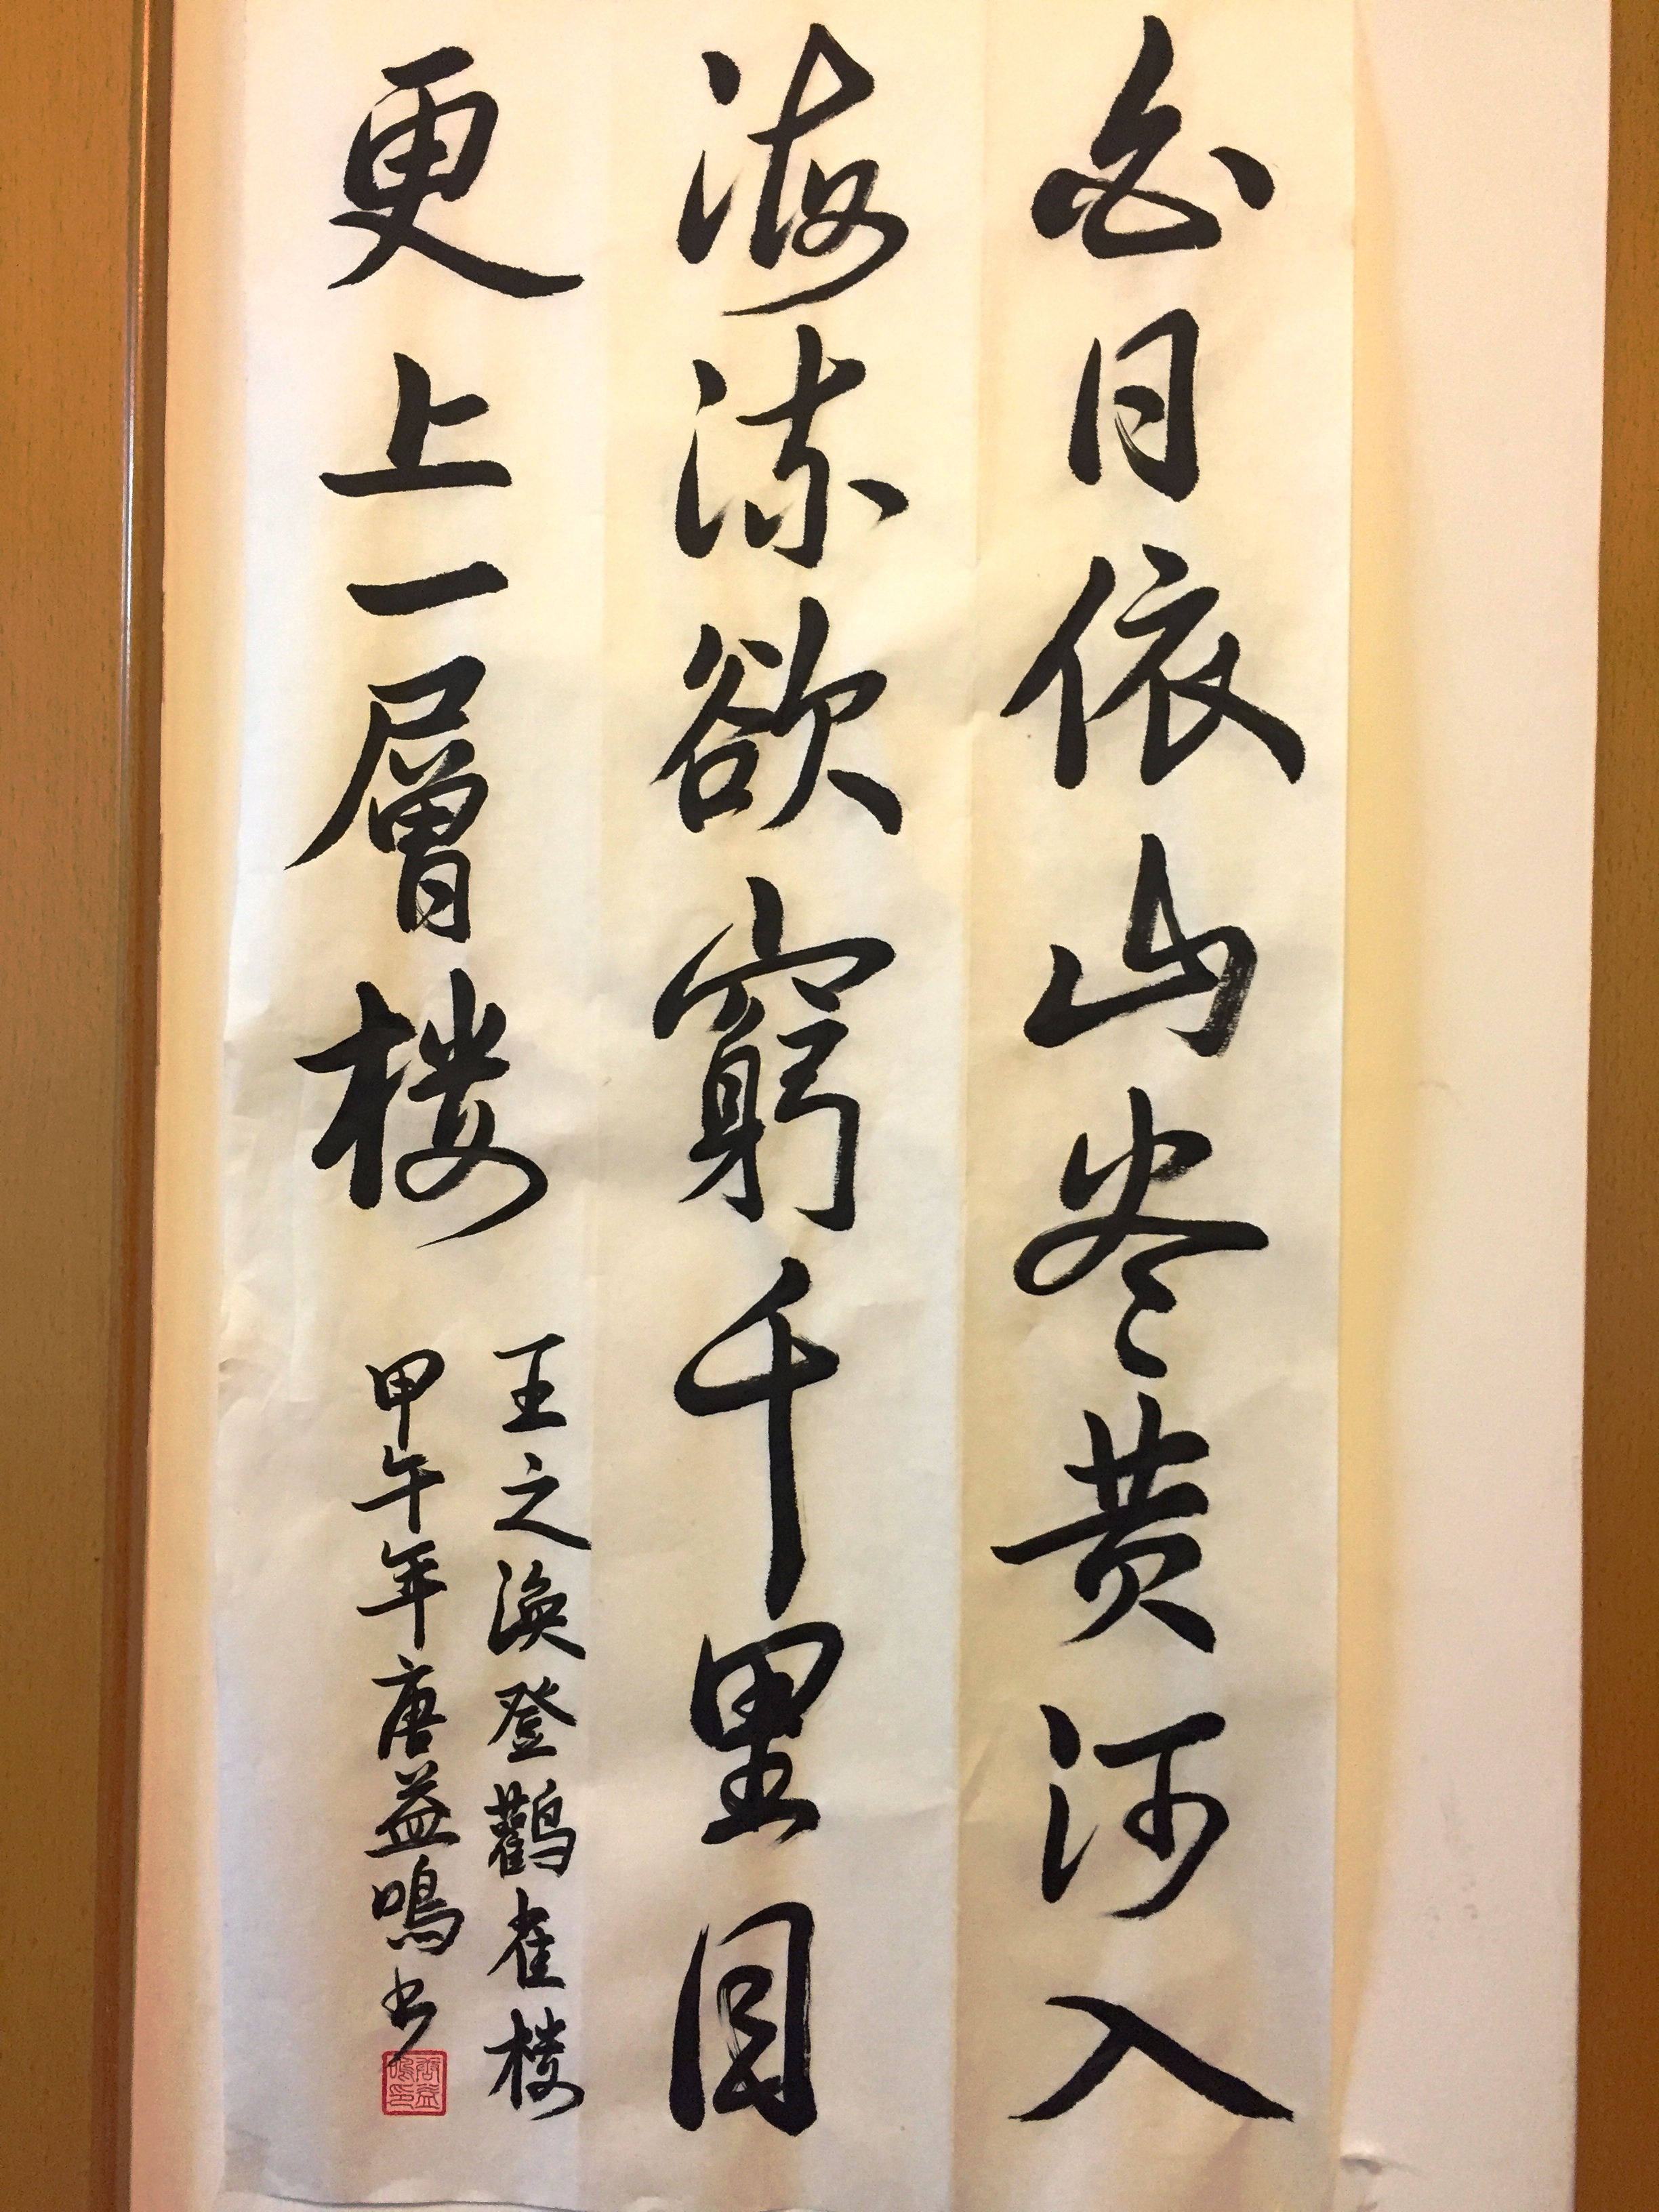 白日依山尽黄河入
海流欲窮千里目
更上一層楼
王之渙登鸛雀楼
甲午年唐益鳴书
唐益鳴印